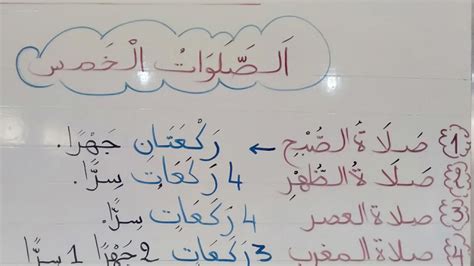 اَلصَّلَوَاتُ الْخَمْسِ
{1} صَلَاةُ الصُّبْحِ ← رَكْعَتَانِ جَهْرًا.
{2} صَلَاةُ الظُّهْرِ 4 رَكَعَاتٍ سِرًّا.
{3} صلاة العصر 4 رَكَعَاتٍ سِرًّا.
{4} صلاة المغرب 3 رَكَعَاتٍ 2 جَهْرًا 1 سِرًّا